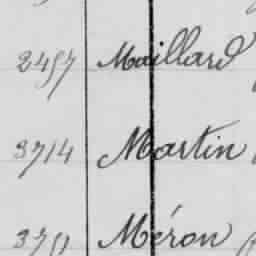 2457 Maillard
3714 Martin
3751 Méron